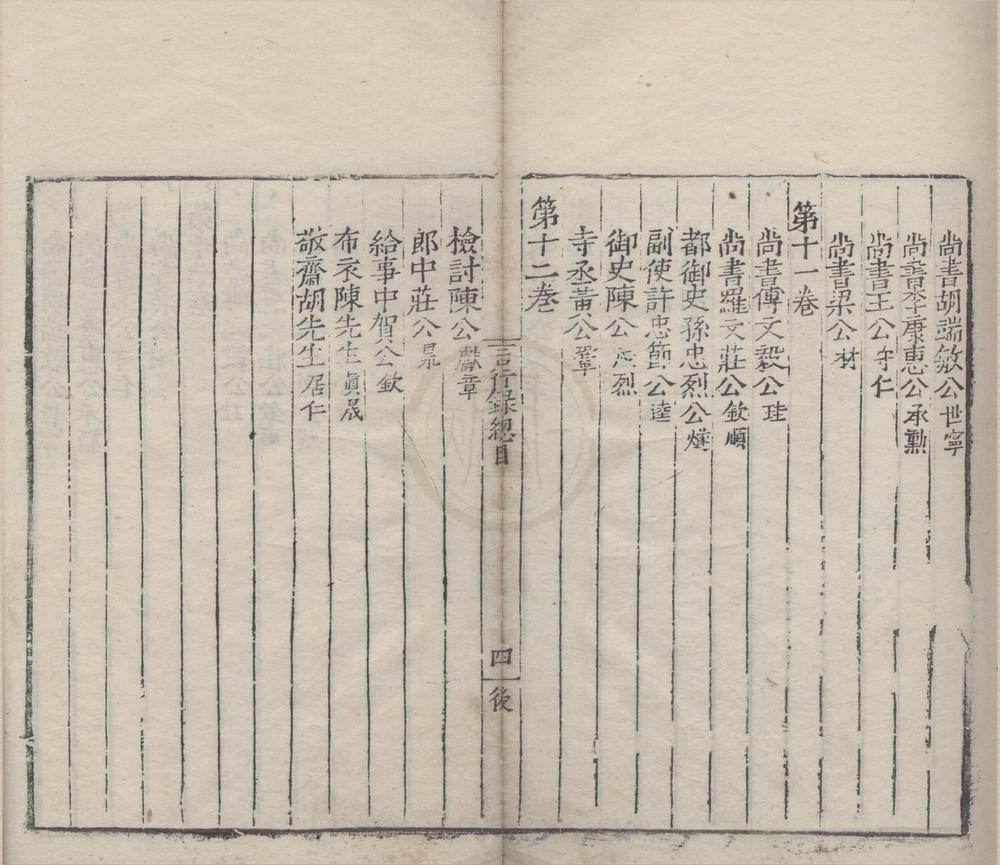 尚書胡端敏公世寧
尚書李康惠公承勳
尚書王公守仁
尚書梁公材
第十一卷
尚書傅文毅公珪
尚書羅文莊公欽順
都御史孫忠烈公燧
副使許忠節公逵
御史陳公茂烈
寺丞黃公鞏
第十二卷
言行錄總目
四
後
檢討陳公獻章
郎中莊公㫤
給事中賀公欽
布衣陳先生眞晟
敬齋胡先生居仁